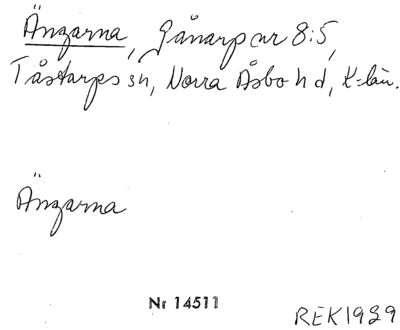 Ängarna, Gånarp nr 8:5,
Tåstarps sn, Norra Åsbo hd, K-län.
Ängarna
Nr 14511
REK 1989